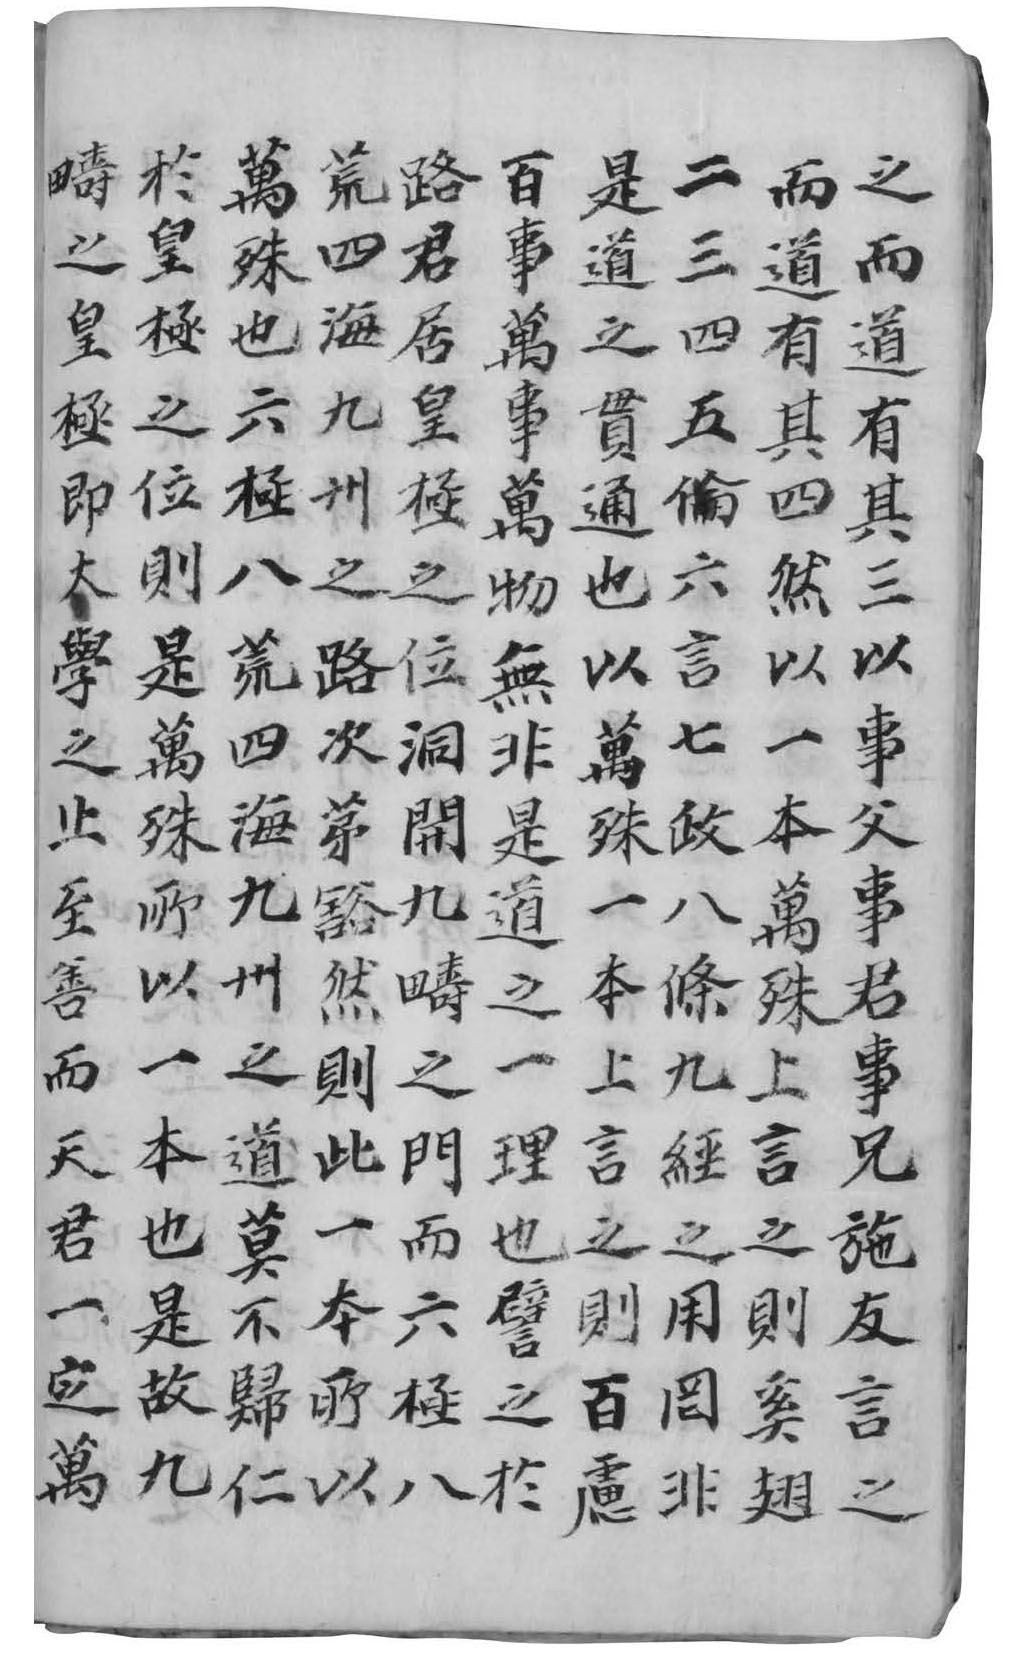 之而道有其三以事父事君事兄施友言之
而道有其四然以一本萬殊上言之則奚翅
二三四五倫六言七政八條九經之用罔非
是道之貫通也以萬殊一本上言之則百慮
百事萬事萬物無非是道之一理也譬之於
路君居皇極之位洞開九疇之門而六極八
荒四海九州之路次茅豁然則此一本所以
萬殊也六極八荒四海九州之道莫不歸仁
於皇極之位則是萬殊所以一本也是故九
疇之皇極即太學之止至善而天君一定萬